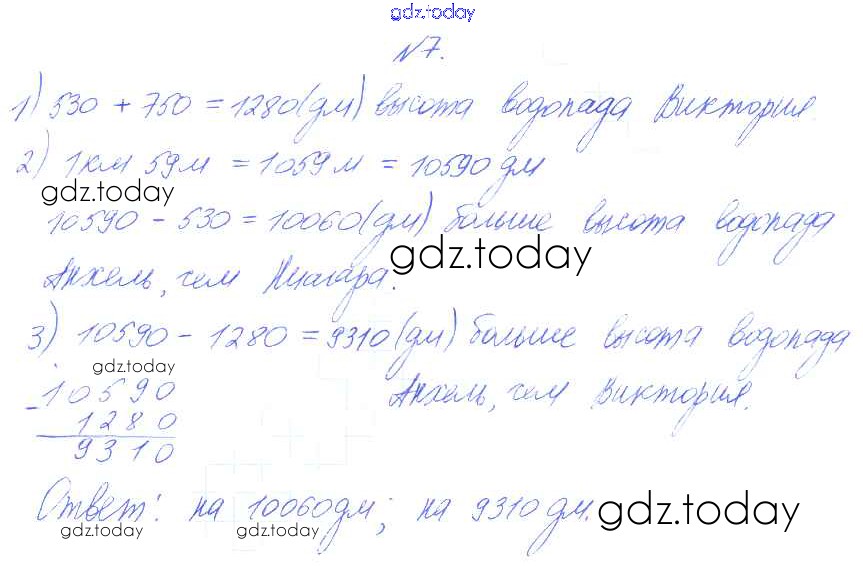 gdz.today
№7.
1) 530 + 750 = 1280(дм) высота водопада Виктория.
2) 1км 59м = 1059м = 10590дм
gdz.today
10590 - 530 = 10060(дм) больше высота водопада
gdz.today
Анхель, чем Ниагара.
3) 10590 - 1280 = 9310(дм) больше высота водопада
gdz.today
Анхель, чем Виктория.
- 10590
1280
9310
Ответ: на 10060дм; на 9310дм.
gdz.today
gdz.today gdz.today